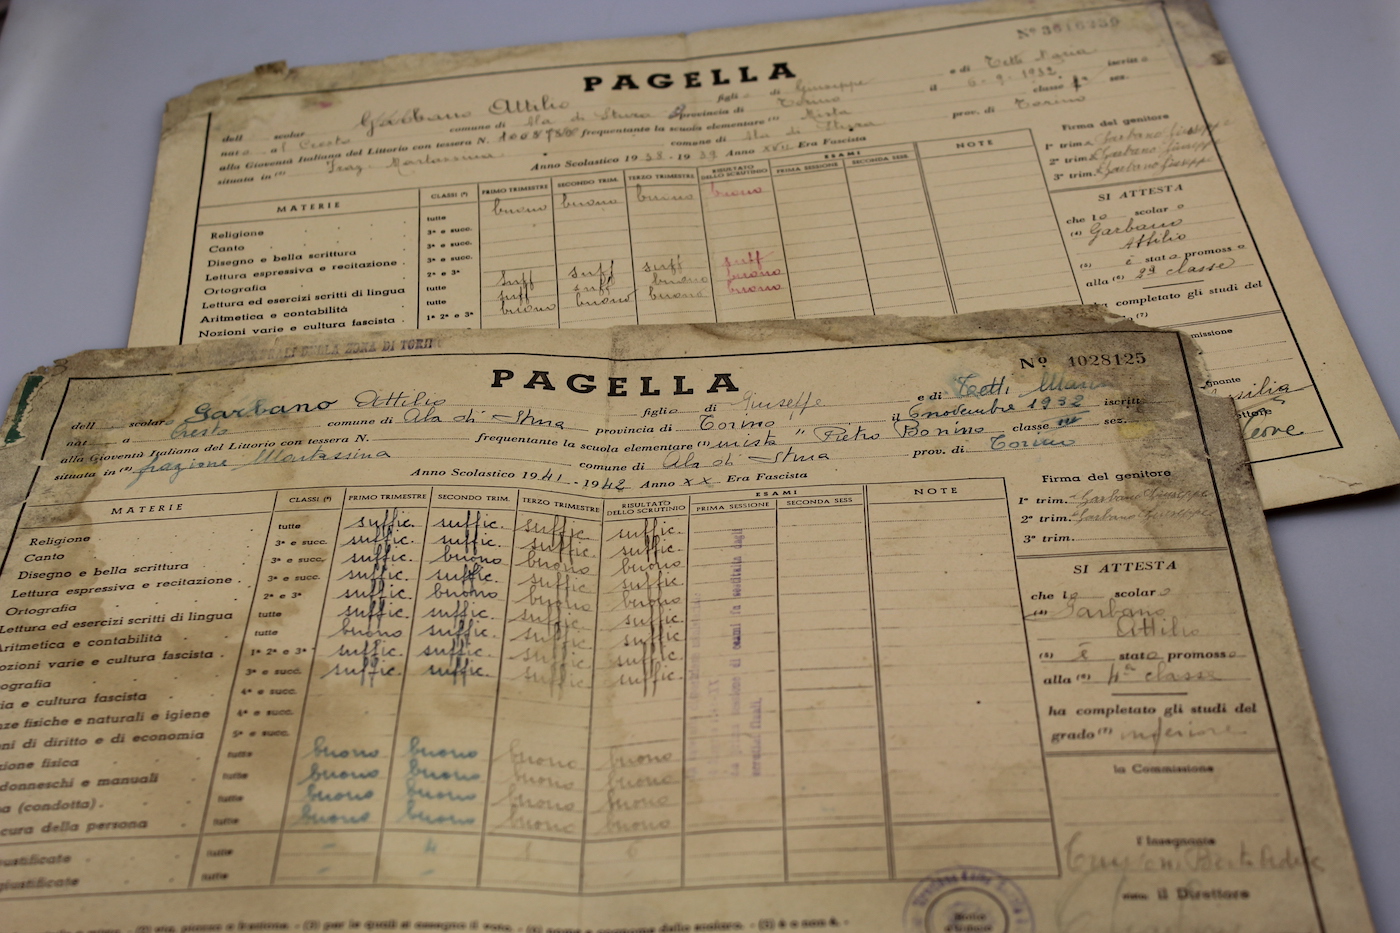 PAGELLA
Nº 3616239
dell scolar Garbano Attilio figli di Giuseppe e di Tetti Maria
nat a Cresto comune di Ala di Stura provincia di Torino il 6-9-1932 iscritto
alla Gioventù Italiana del Littorio con tessera N. frequentante la scuola elementare (1) Mista classe 1ª sez.
situata in (2) Fraz. Martassina comune di Ala di Stura prov. di Torino
Anno Scolastico 1938-1939 Anno XVII Era Fascista
MATERIE CLASSI (*) PRIMO TRIMESTRE SECONDO TRIM. TERZO TRIMESTRE RISULTATO DELLO SCRUTINIO ESAMI PRIMA SESSIONE SECONDA SESS. NOTE
Religione tutte buono buono buono buono
Canto 3ª e succ.
Disegno e bella scrittura 3ª e succ.
Lettura espressiva e recitazione 3ª e succ.
Ortografia 2ª e 3ª
Lettura ed esercizi scritti di lingua tutte suff suff suff suff
Aritmetica e contabilità tutte suff suff buono buono
Nozioni varie e cultura fascista 1ª 2ª e 3ª buono buono buono buono
Firma del genitore
1º trim. Garbano Giuseppe
2º trim. Garbano Giuseppe
3º trim. Garbano Giuseppe
SI ATTESTA
che lo scolaro
(4) Garbano
Attilio
(5) è stato promosso
alla (6) 2ª classe
ha completato gli studi del
PAGELLA
Nº 1028125
dell scolaro Garbano Attilio figlio di Giuseppe e di Tetti Maria
nat a Cresto comune di Ala di Stura provincia di Torino il 6 novembre 1932 iscritto
alla Gioventù Italiana del Littorio con tessera N. frequentante la scuola elementare (1) mista "Pietro Bonino classe III sez.
situata in (2) frazione Martassina comune di Ala di Stura prov. di Torino
Anno Scolastico 1941-1942 Anno XX Era Fascista
MATERIE CLASSI (*) PRIMO TRIMESTRE SECONDO TRIM. TERZO TRIMESTRE RISULTATO DELLO SCRUTINIO ESAMI PRIMA SESSIONE SECONDA SESS NOTE
Religione tutte suffic. suffic. suffic. suffic.
Canto 3ª e succ. suffic. suffic. suffic. suffic.
Disegno e bella scrittura 3ª e succ. suffic. buono buono buono
Lettura espressiva e recitazione 3ª e succ. suffic. suffic. suffic. suffic.
Ortografia 2ª e 3ª suffic. buono buono buono
Lettura ed esercizi scritti di lingua tutte suffic. suffic. suffic. suffic.
Aritmetica e contabilità tutte buono suffic. suffic. suffic.
Nozioni varie e cultura fascista 1ª 2ª e 3ª suffic. suffic. suffic. suffic.
ografia 3ª e succ. suffic. suffic. suffic. suffic.
ia e cultura fascista 4ª e succ.
nze fisiche e naturali e igiene 4ª e succ.
oni di diritto e di economia 5ª e succ.
zione fisica tutte buono buono buono buono
donneschi e manuali tutte buono buono buono buono
a (condotta) tutte buono buono buono buono
cura della persona tutte buono buono buono buono
iustificate tutte - 4
giustificate tutte
Firma del genitore
1º trim. Garbano Giuseppe
2º trim. Garbano Giuseppe
3º trim.
SI ATTESTA
che lo scolaro
(4) Garbano
Attilio
(5) è stato promosso
alla (6) 4ª classe
ha completato gli studi del
grado (7) inferiore
la Commissione
l'Insegnante
il Direttore